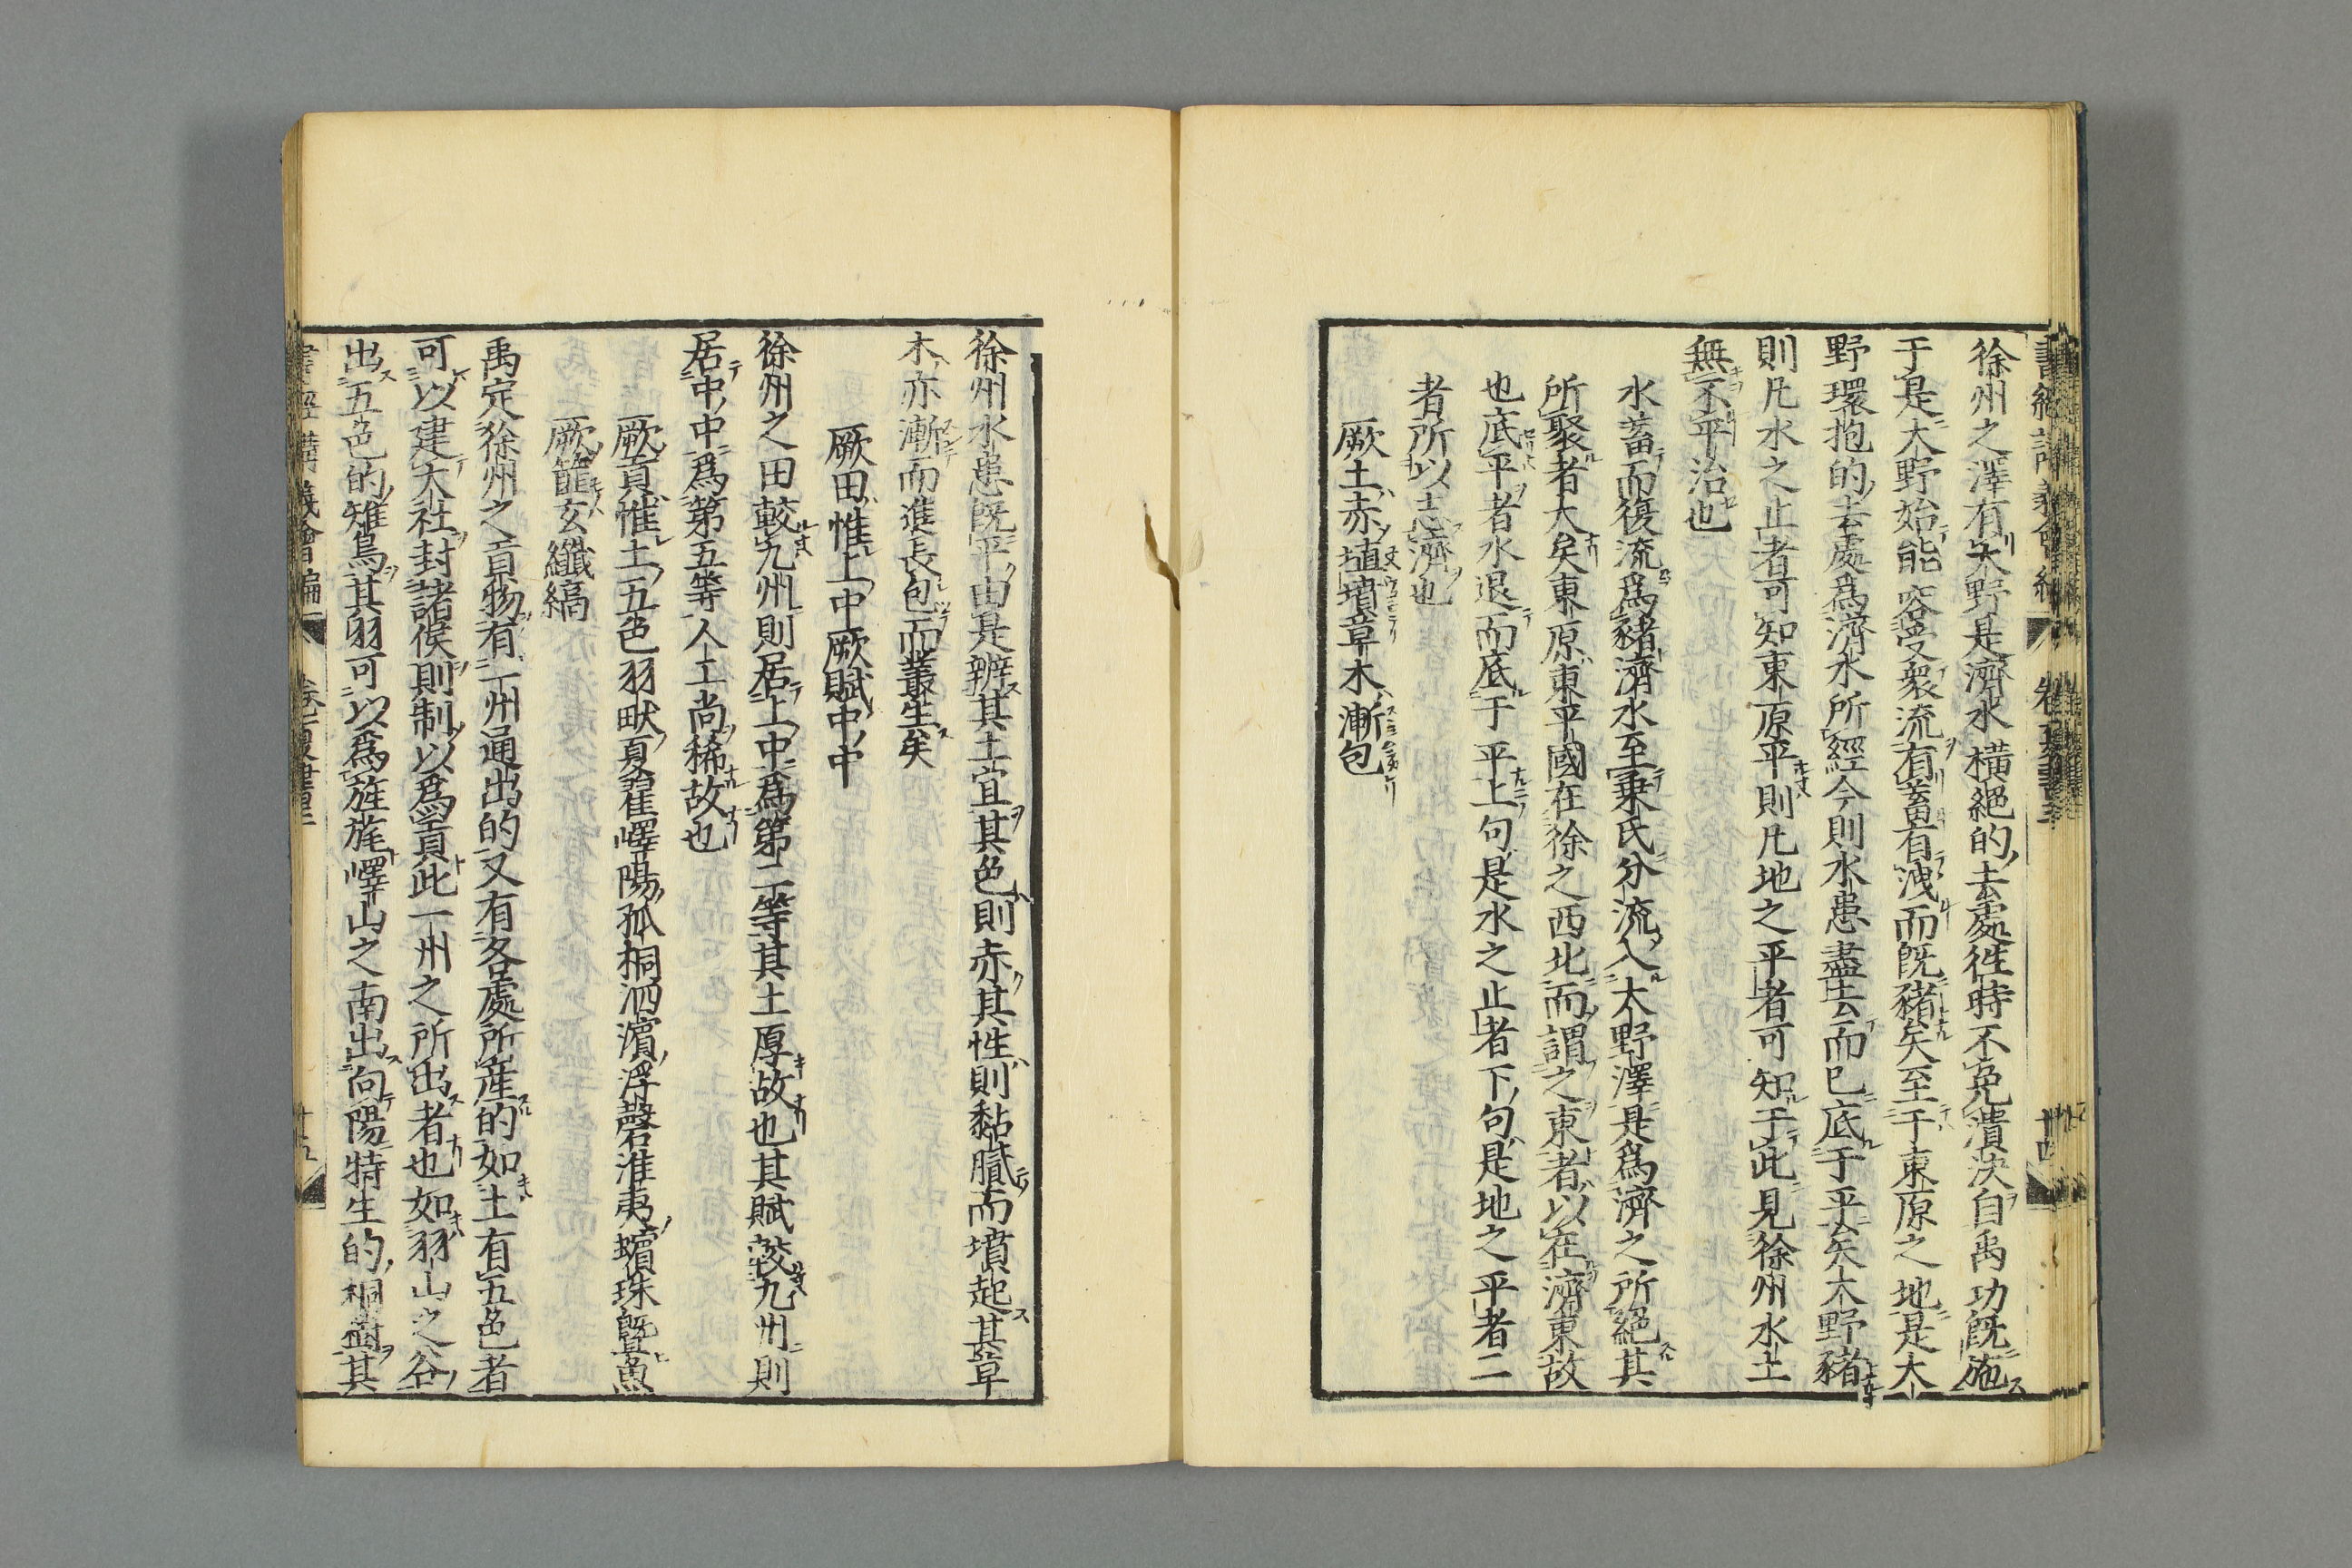 徐州之澤有大野是濟水橫絕的去處徃時不免潰决自禹功既施
于是大野始能容受衆流有蓄有洩而既豬矣至于東原之地是大
野環抱的去處為濟水所經今則水患盡去而已底于平矣大野豬
則凡水之止者可知東原平則凡地之平者可知于此見徐州水土
無不平治也
水蓄而復流爲豬濟水至乗氏分流入大野澤是爲濟之所絕其
所聚者大矣東原東平國在徐之西北而謂之東者以在濟東故
也底平者水退而底于平上句是水之止者下句是地之平者二
者所以志濟也
厥土赤埴墳草木漸包
徐州水患既平由是辨其土宜其色則赤其性則黏膩而墳起其草
木亦漸而進長包而叢生矣
厥田惟上中厥賦中中
徐州之田較九州則居上中為第二等其土厚故也其賦較九州則
居中中爲第五等人工尚稀故也
厥貢惟土五色羽畎夏翟嶧陽孤桐泗濵浮磬淮夷蠙珠曁魚
厥篚玄纖縞
禹定徐州之貢物有一州通出的又有各處所産的如土有五色者
可以建大社封諸侯則制以爲貢此一州之所出者也如羽山之谷
出五色的雉鳥其羽可以爲旌旄嶧山之南出向陽特生的桐樹其